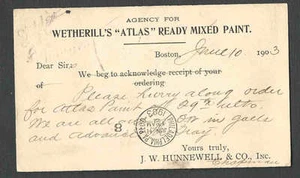 AGENCY FOR
WETHERILL'S "ATLAS" READY MIXED PAINT.
Boston, June 10 1903
Dear Sirs
We beg to acknowledge receipt of your
ordering
Please hurry along order
for Atlas Paint of 29th ulto.
We are all out in galls
and Gray.
8
PHILADELPHIA, PA.
1903
Yours truly,
J. W. HUNNEWELL & CO., Inc.